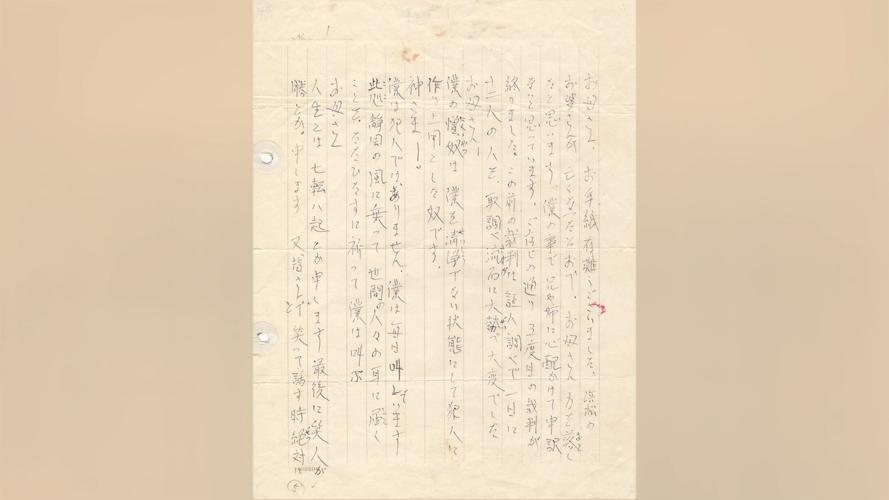 お母さん、お手紙有難うございました、浜松の
お婆さんが亡くなったそおで、お母さん力を落し
なと思います、僕の事で兄や姉に心配かけて申訳
ないと思っています。ご存じの通り3度目の裁判が
終りました。この前の裁判は証人調べで一日に
十二人の人を、取調べ流石に大勢で大変でした
お母さん!
僕の憎奴は僕を清浄でない状態にして犯人に
作り上用とした奴です。
神さま―。
僕は犯人ではありません、僕は毎日叫んでいます
此処静岡の風に乗って世間の人々の耳に届く
ことを、ただひたすに祈って僕は叫ぶ
お母さん
人生とは七転八起とか申します最後に笑人が
勝とか。申します 又皆さんで笑って話す時絶対に